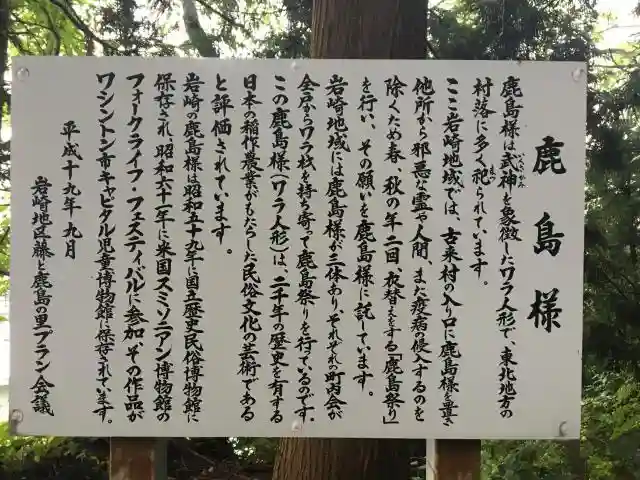 鹿島様
鹿島様は武神を象徴したワラ人形で、東北地方の
村落に多く祀られています。
ここ岩崎地域では、古来村の入り口に鹿島様を置き
他所から邪悪な霊や人間、また疫病の侵入するのを
除くため春、秋の年二回、衣替えをする「鹿島祭り」
を行い、その願いを鹿島様に託しています。
岩崎地域には鹿島様が三体あり、それぞれの町内会が
全戸からワラ杉を持ち寄って鹿島祭りを行っているのです。
この鹿島様(ワラ人形)は、二千年の歴史を有する
日本の稲作農業がもたらした民俗文化の芸術である
と評価されています。
岩崎の鹿島様は昭和五十九年に国立歴史民俗博物館に
保存され、昭和六十一年に米国スミソニアン博物館の
フォークライフ・フェスティバルに参加、その作品が
ワシントン市キャピタル児童博物館に保存されています。
平成十九年九月
岩崎地区藤と鹿島の里プラン会議